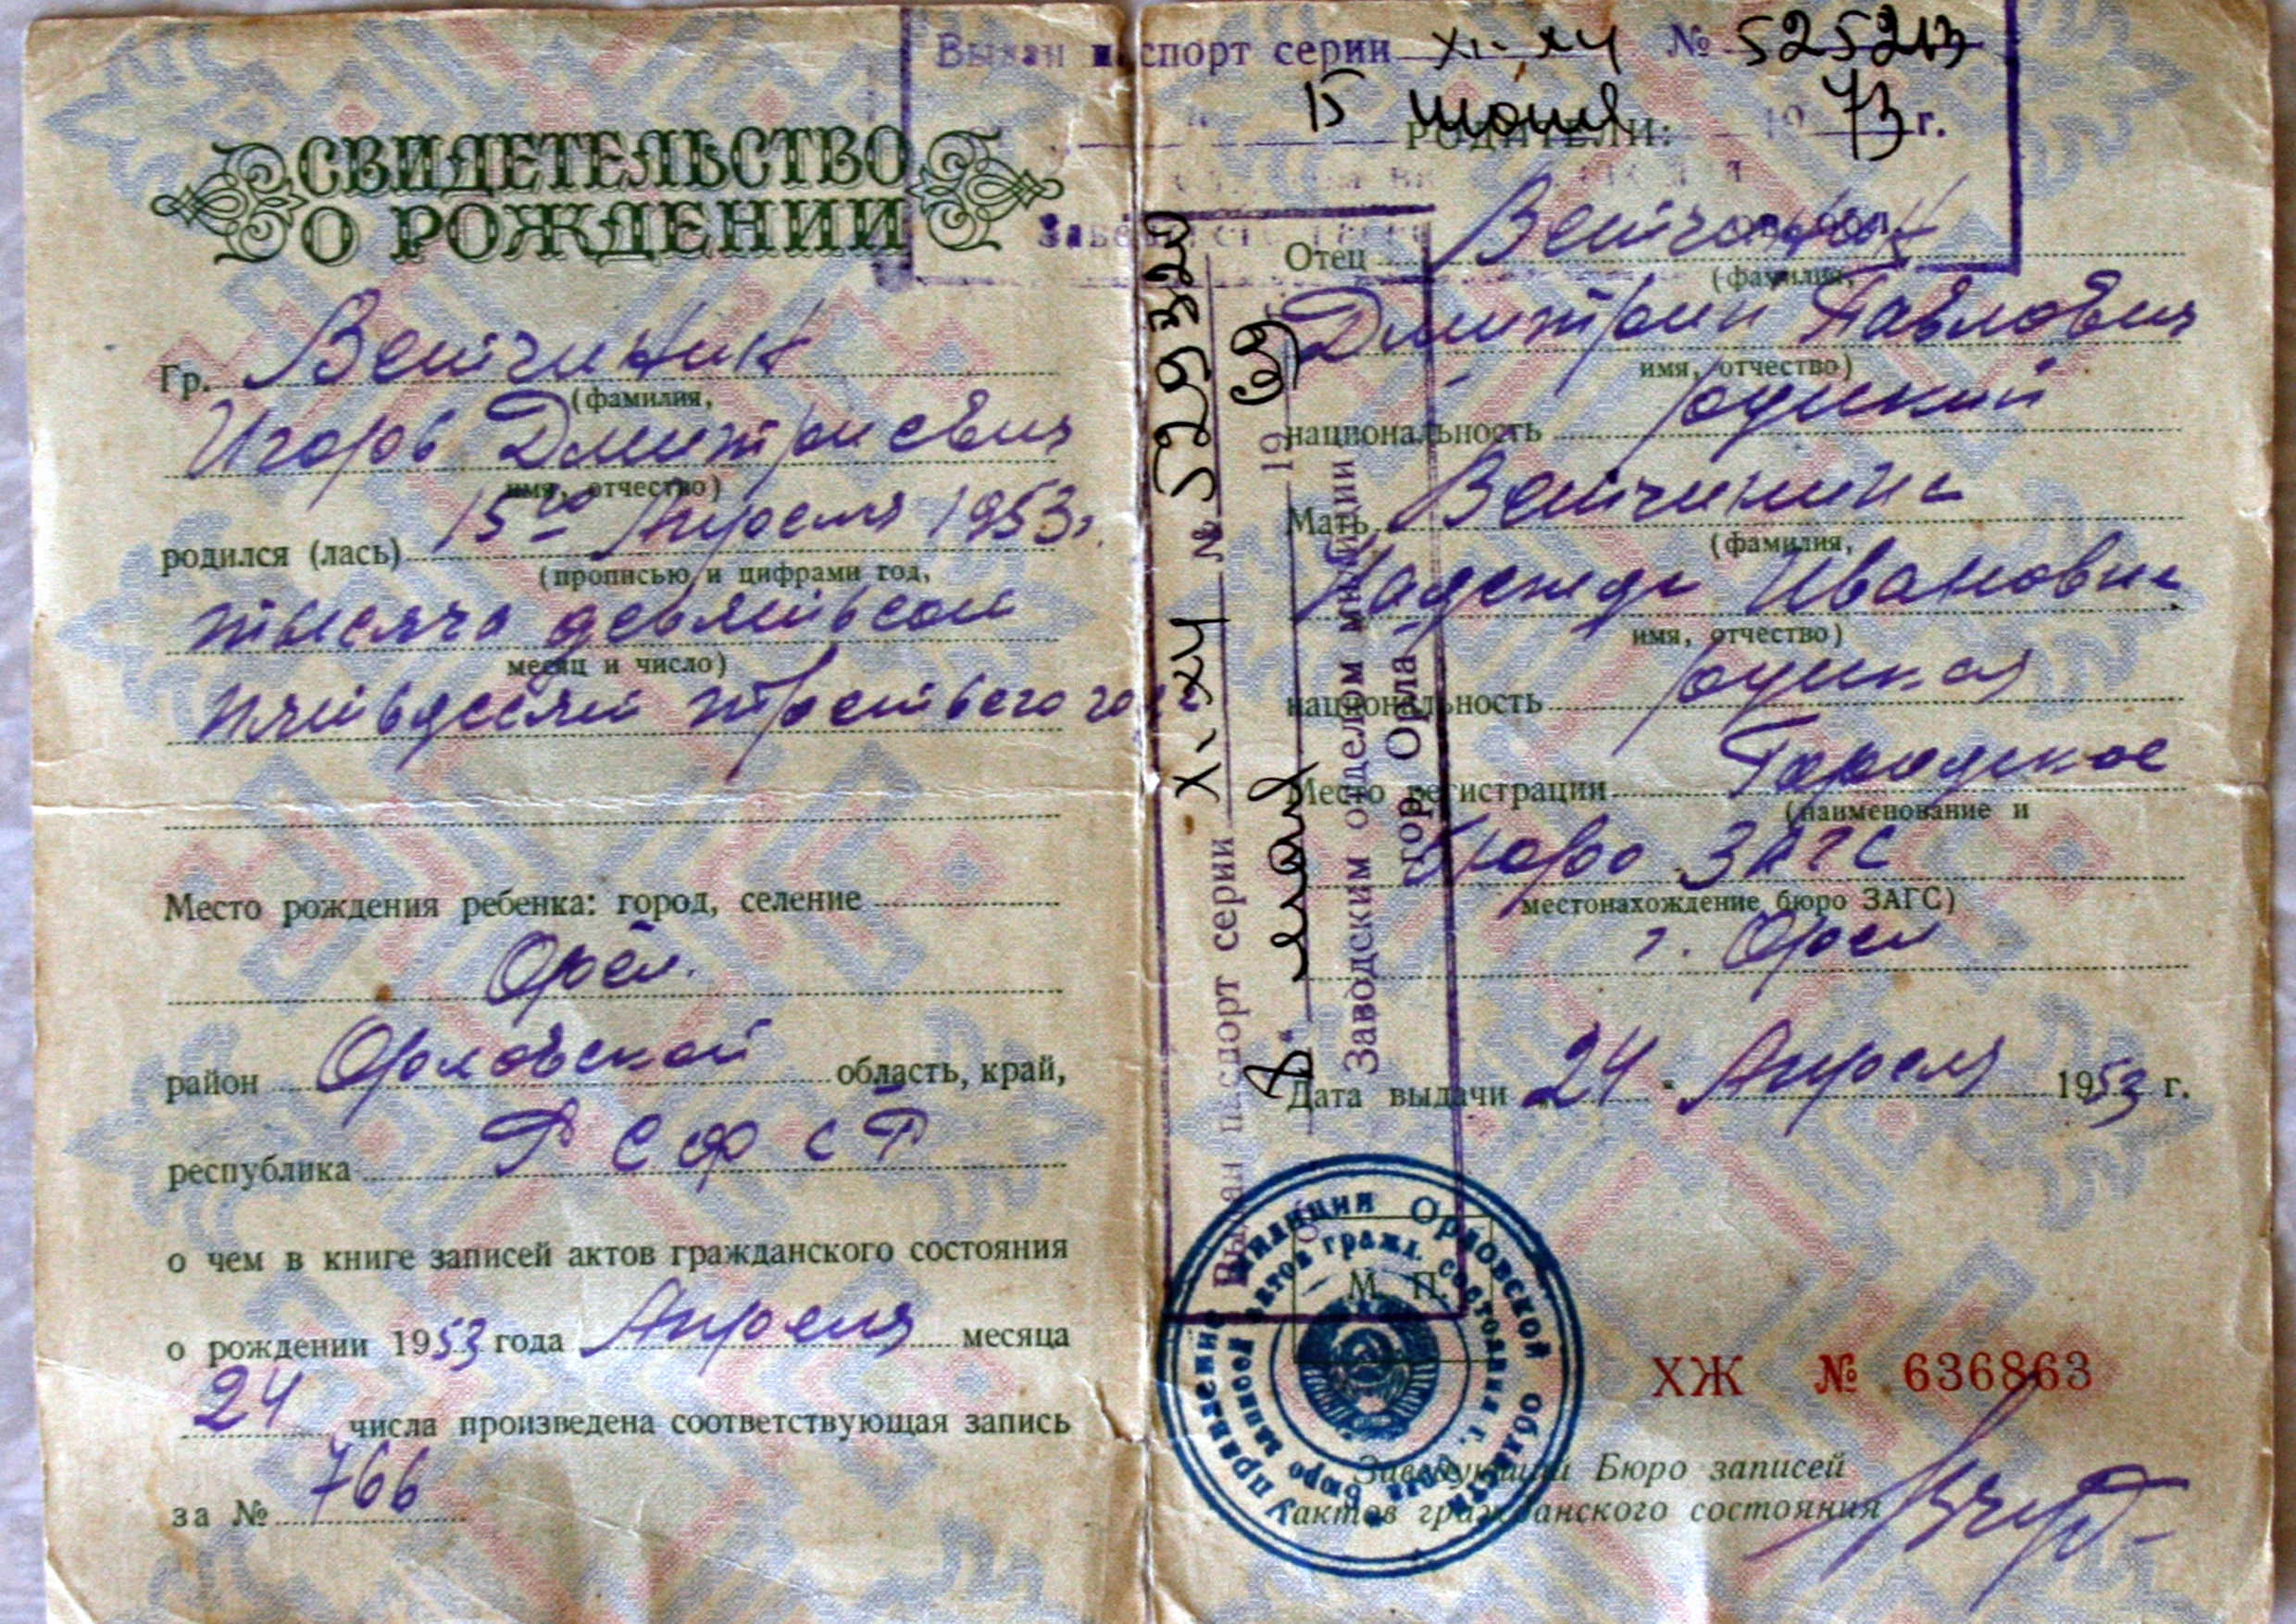 СВИДЕТЕЛЬСТВО
О РОЖДЕНИИ
Гр. Ветчинкин
(фамилия,
Игорь Дмитриевич
имя, отчество)
родился (лась) 15го Апреля 1953г.
(прописью и цифрами год,
тысяча девятьсот
месяц и число)
пятьдесят третьего года
Место рождения ребенка: город, селение
Орёл.
район Орловской область, край,
республика РСФСР
о чем в книге записей актов гражданского состояния
о рождении 1953 года Апреля месяца
24 числа произведена соответствующая запись
за № 766
Выдан паспорт серии XI-ХЧ № 525213
15 июня 1973 г.
РОДИТЕЛИ:
Отец Ветчинкин
(фамилия,
Дмитрий Павлович
имя, отчество)
национальность русский
Мать Ветчинкина
(фамилия,
Надежда Ивановна
имя, отчество)
национальность русская
Место регистрации Городское
(наименование и
бюро ЗАГС
местонахождение бюро ЗАГС)
г. Орел
Дата выдачи „24" Апреля 1953 г.
М. П.
ХЖ № 636863
Заведующий Бюро записей
актов гражданского состояния
Выдан паспорт серии X-ХЧ № 529320
мая 1969
Заводским отделом милиции
гор. Орла
Управление милиции Орловской области
бюро записей актов гражд. состояния г. Орла